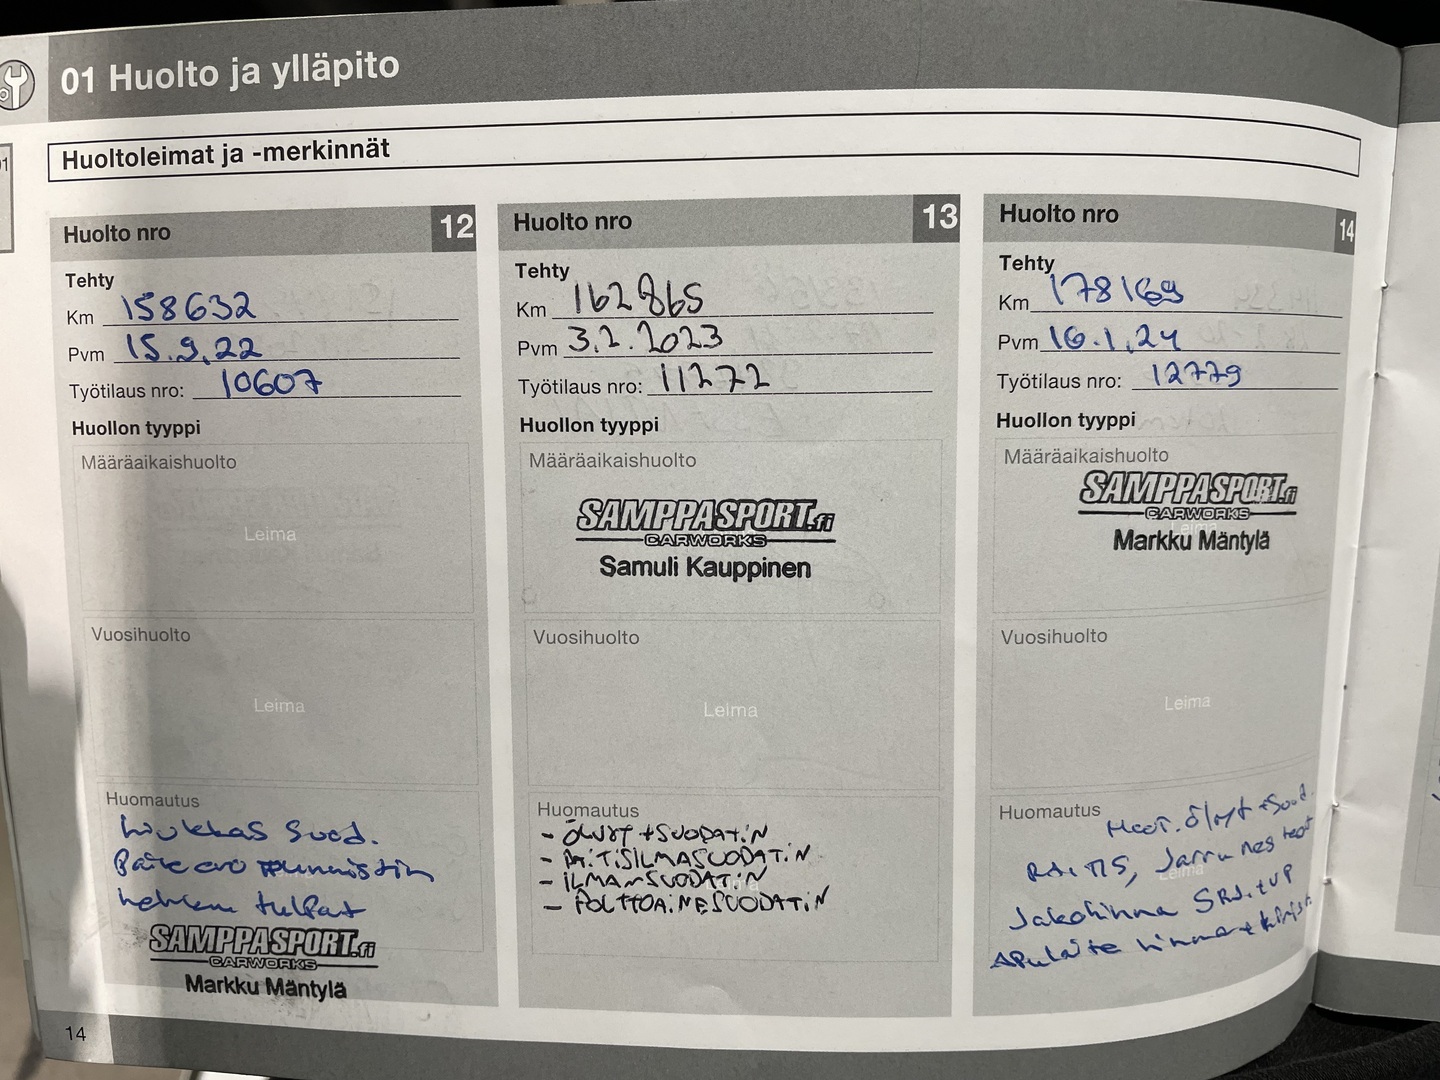 01 Huolto ja ylläpito
Huoltoleimat ja -merkinnät
Huolto nro 12
Tehty
Km 158632
Pvm 15.9.22
Työtilaus nro: 10607
Huollon tyyppi
Määräaikaishuolto
Leima
Vuosihuolto
Leima
Huomautus
hiukkas suod.
Paine ero tunnistin
hehkutulpat
SAMPPASPORT.fi
CARWORKS
Markku Mäntylä
Huolto nro 13
Tehty
Km 162865
Pvm 3.2.2023
Työtilaus nro: 11272
Huollon tyyppi
Määräaikaishuolto
SAMPPASPORT.fi
CARWORKS
Samuli Kauppinen
Vuosihuolto
Leima
Huomautus
- ÖLJYT + SUODATIN
- RAITISILMASUODATIN
- ILMANSUODATIN
- POLTTOAINESUODATIN
Huolto nro 14
Tehty
Km 178169
Pvm 16.1.24
Työtilaus nro: 12779
Huollon tyyppi
Määräaikaishuolto
SAMPPASPORT.fi
CARWORKS
Leima
Markku Mäntylä
Vuosihuolto
Leima
Huomautus
Moot. öljyt + suod.
Rait IS, Jarru nes teet
Leima
Jakohihna SRJ. + VP
Apulaite hihna + kirist.
14
01